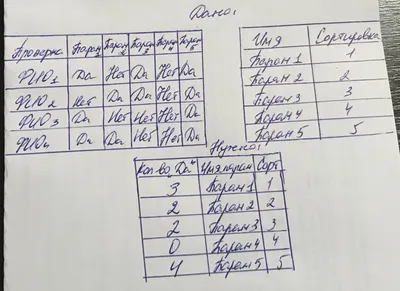 Дано:
Проверка Парам 1 Парам 2 Парам 3 Парам 4 Парам 5
ФИО1 Да Нет Да Нет Да
ФИО2 Нет Да Да Нет Да
ФИО3 Да Нет Нет Нет Да
ФИО4 Да Да Нет Нет Да
Имя Сортировка
Парам 1 1
Парам 2 2
Парам 3 3
Парам 4 4
Парам 5 5
Нужно:
Кол-во "Да" Имя парам Сорт
3 Парам 1 1
2 Парам 2 2
2 Парам 3 3
0 Парам 4 4
4 Парам 5 5